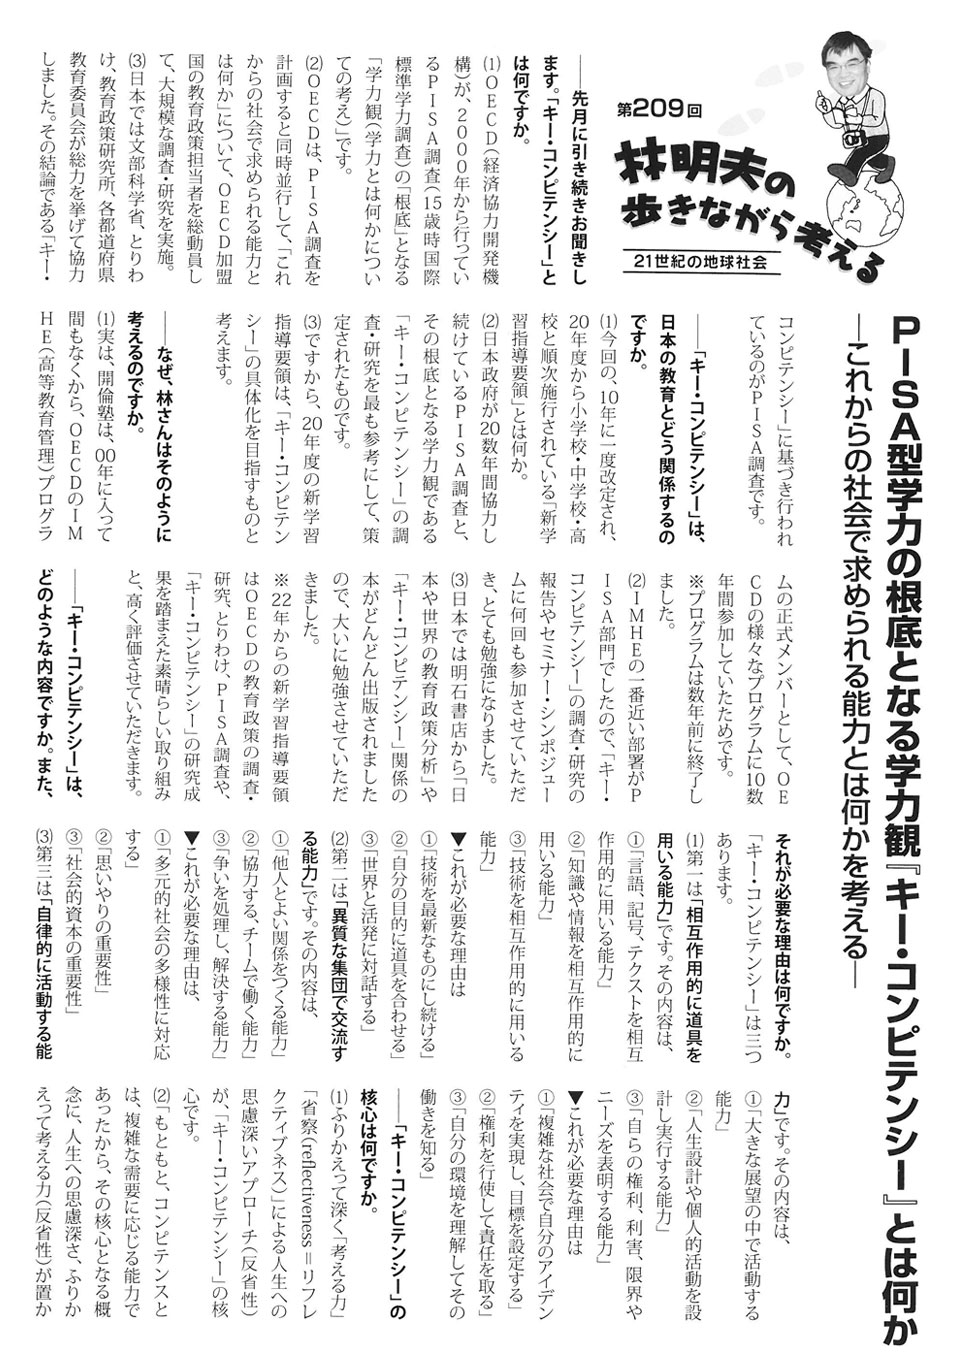 第209回
林明夫の
歩きながら考える
21世紀の地球社会
PISA型学力の根底となる学力観『キー・コンピテンシー』とは何か
―これからの社会で求められる能力とは何かを考える―
――先月に引き続きお聞きし
ます。「キー・コンピテンシー」と
は何ですか。
⑴OECD(経済協力開発機
構)が、2000年から行ってい
るPISA調査(15歳時国際
標準学力調査)の「根底」となる
「学力観(学力とは何かについ
ての考え)」です。
⑵OECDは、PISA調査を
計画すると同時並行して、「これ
からの社会で求められる能力と
は何か」について、OECD加盟
国の教育政策担当者を総動員し
て、大規模な調査・研究を実施。
⑶日本では文部科学省、とりわ
け、教育政策研究所、各都道府県
教育委員会が総力を挙げて協力
しました。その結論である「キー・
コンピテンシー」に基づき行われ
ているのがPISA調査です。
――「キー・コンピテンシー」は、
日本の教育とどう関係するの
ですか。
⑴今回の、10年に一度改定され、
20年度から小学校・中学校・高
校と順次施行されている「新学
習指導要領」とは何か。
⑵日本政府が20数年間協力し
続けているPISA調査と、
その根底となる学力観である
「キー・コンピテンシー」の調
査・研究を最も参考にして、策
定されたものです。
⑶ですから、20年度の新学習
指導要領は、「キー・コンピテン
シー」の具体化を目指すものと
考えます。
――なぜ、林さんはそのように
考えるのですか。
⑴実は、開倫塾は、00年に入って
間もなくから、OECDのIM
HE(高等教育管理)プログラ
ムの正式メンバーとして、OE
CDの様々なプログラムに10数
年間参加していたためです。
※プログラムは数年前に終了し
ました。
⑵IMHEの一番近い部署がP
ISA部門でしたので、「キー・
コンピテンシー」の調査・研究の
報告やセミナー・シンポジュー
ムに何回も参加させていただ
き、とても勉強になりました。
⑶日本では明石書店から「日
本や世界の教育政策分析」や
「キー・コンピテンシー」関係の
本がどんどん出版されました
ので、大いに勉強させていただ
きました。
※22年からの新学習指導要領
はOECDの教育政策の調査・
研究、とりわけ、PISA調査や、
「キー・コンピテンシー」の研究成
果を踏まえた素晴らしい取り組み
と、高く評価させていただきます。
――「キー・コンピテンシー」は、
どのような内容ですか。また、
それが必要な理由は何ですか。
「キー・コンピテンシー」は三つ
あります。
⑴第一は「相互作用的に道具を
用いる能力」です。その内容は、
①「言語、記号、テクストを相互
作用的に用いる能力」
②「知識や情報を相互作用的に
用いる能力」
③「技術を相互作用的に用いる
能力」
▼これが必要な理由は
①「技術を最新なものにし続ける」
②「自分の目的に道具を合わせる」
③「世界と活発に対話する」
⑵第二は「異質な集団で交流す
る能力」です。その内容は、
①「他人とよい関係をつくる能力」
②「協力する、チームで働く能力」
③「争いを処理し、解決する能力」
▼これが必要な理由は、
①「多元的社会の多様性に対応
する」
②「思いやりの重要性」
③「社会的資本の重要性」
⑶第三は「自律的に活動する能
力」です。その内容は、
①「大きな展望の中で活動する
能力」
②「人生設計や個人的活動を設
計し実行する能力」
③「自らの権利、利害、限界や
ニーズを表明する能力」
▼これが必要な理由は
①「複雑な社会で自分のアイデン
ティを実現し、目標を設定する」
②「権利を行使して責任を取る」
③「自分の環境を理解してその
働きを知る」
――「キー・コンピテンシー」の
核心は何ですか。
⑴ふりかえって深く「考える力」
「省察(reflectiveness＝リフレ
クティブネス)」による人生への
思慮深いアプローチ(反省性)
が、「キー・コンピテンシー」の核
心です。
⑵「もともと、コンピテンスと
は、複雑な需要に応じる能力で
あったから、その核心となる概
念に、人生への思慮深さ、ふりか
えって考える力(反省性)が置か